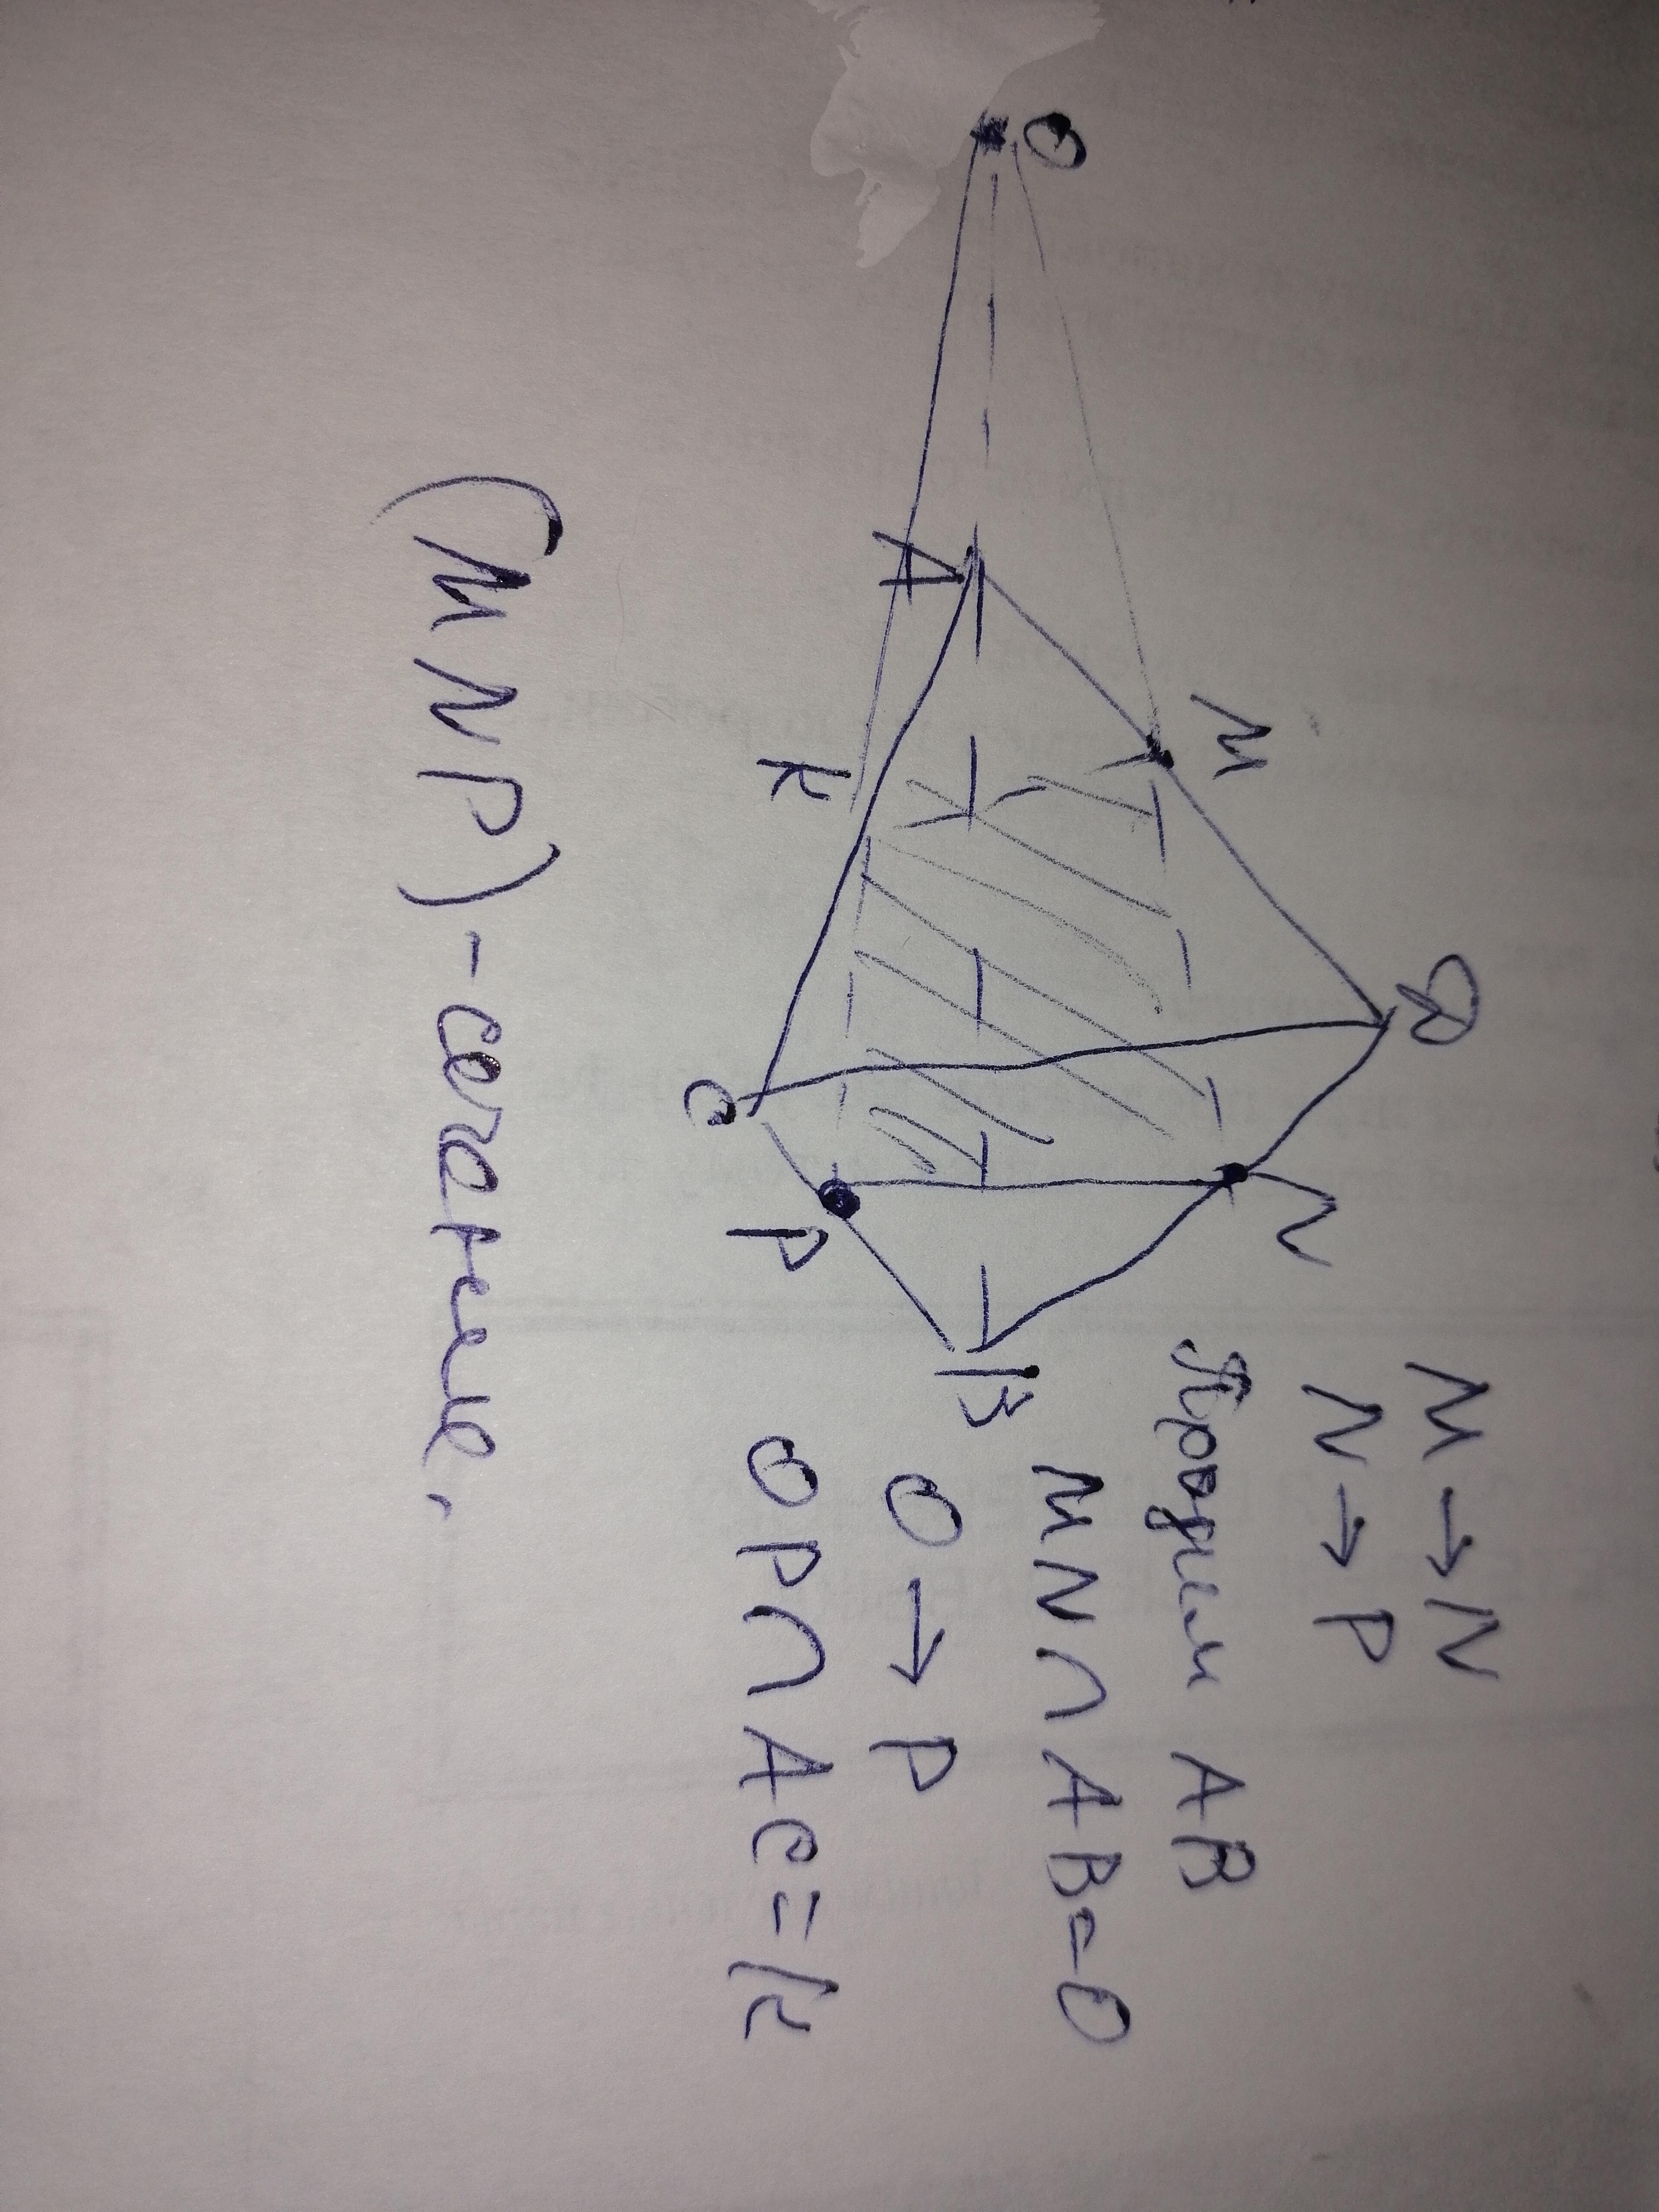 D
M → N
M
N → P
N
Продлим AB
O
MN ∩ AB = O
A
B
O → P
K
P
OP ∩ AC = K
C
(MNP) - сечение.